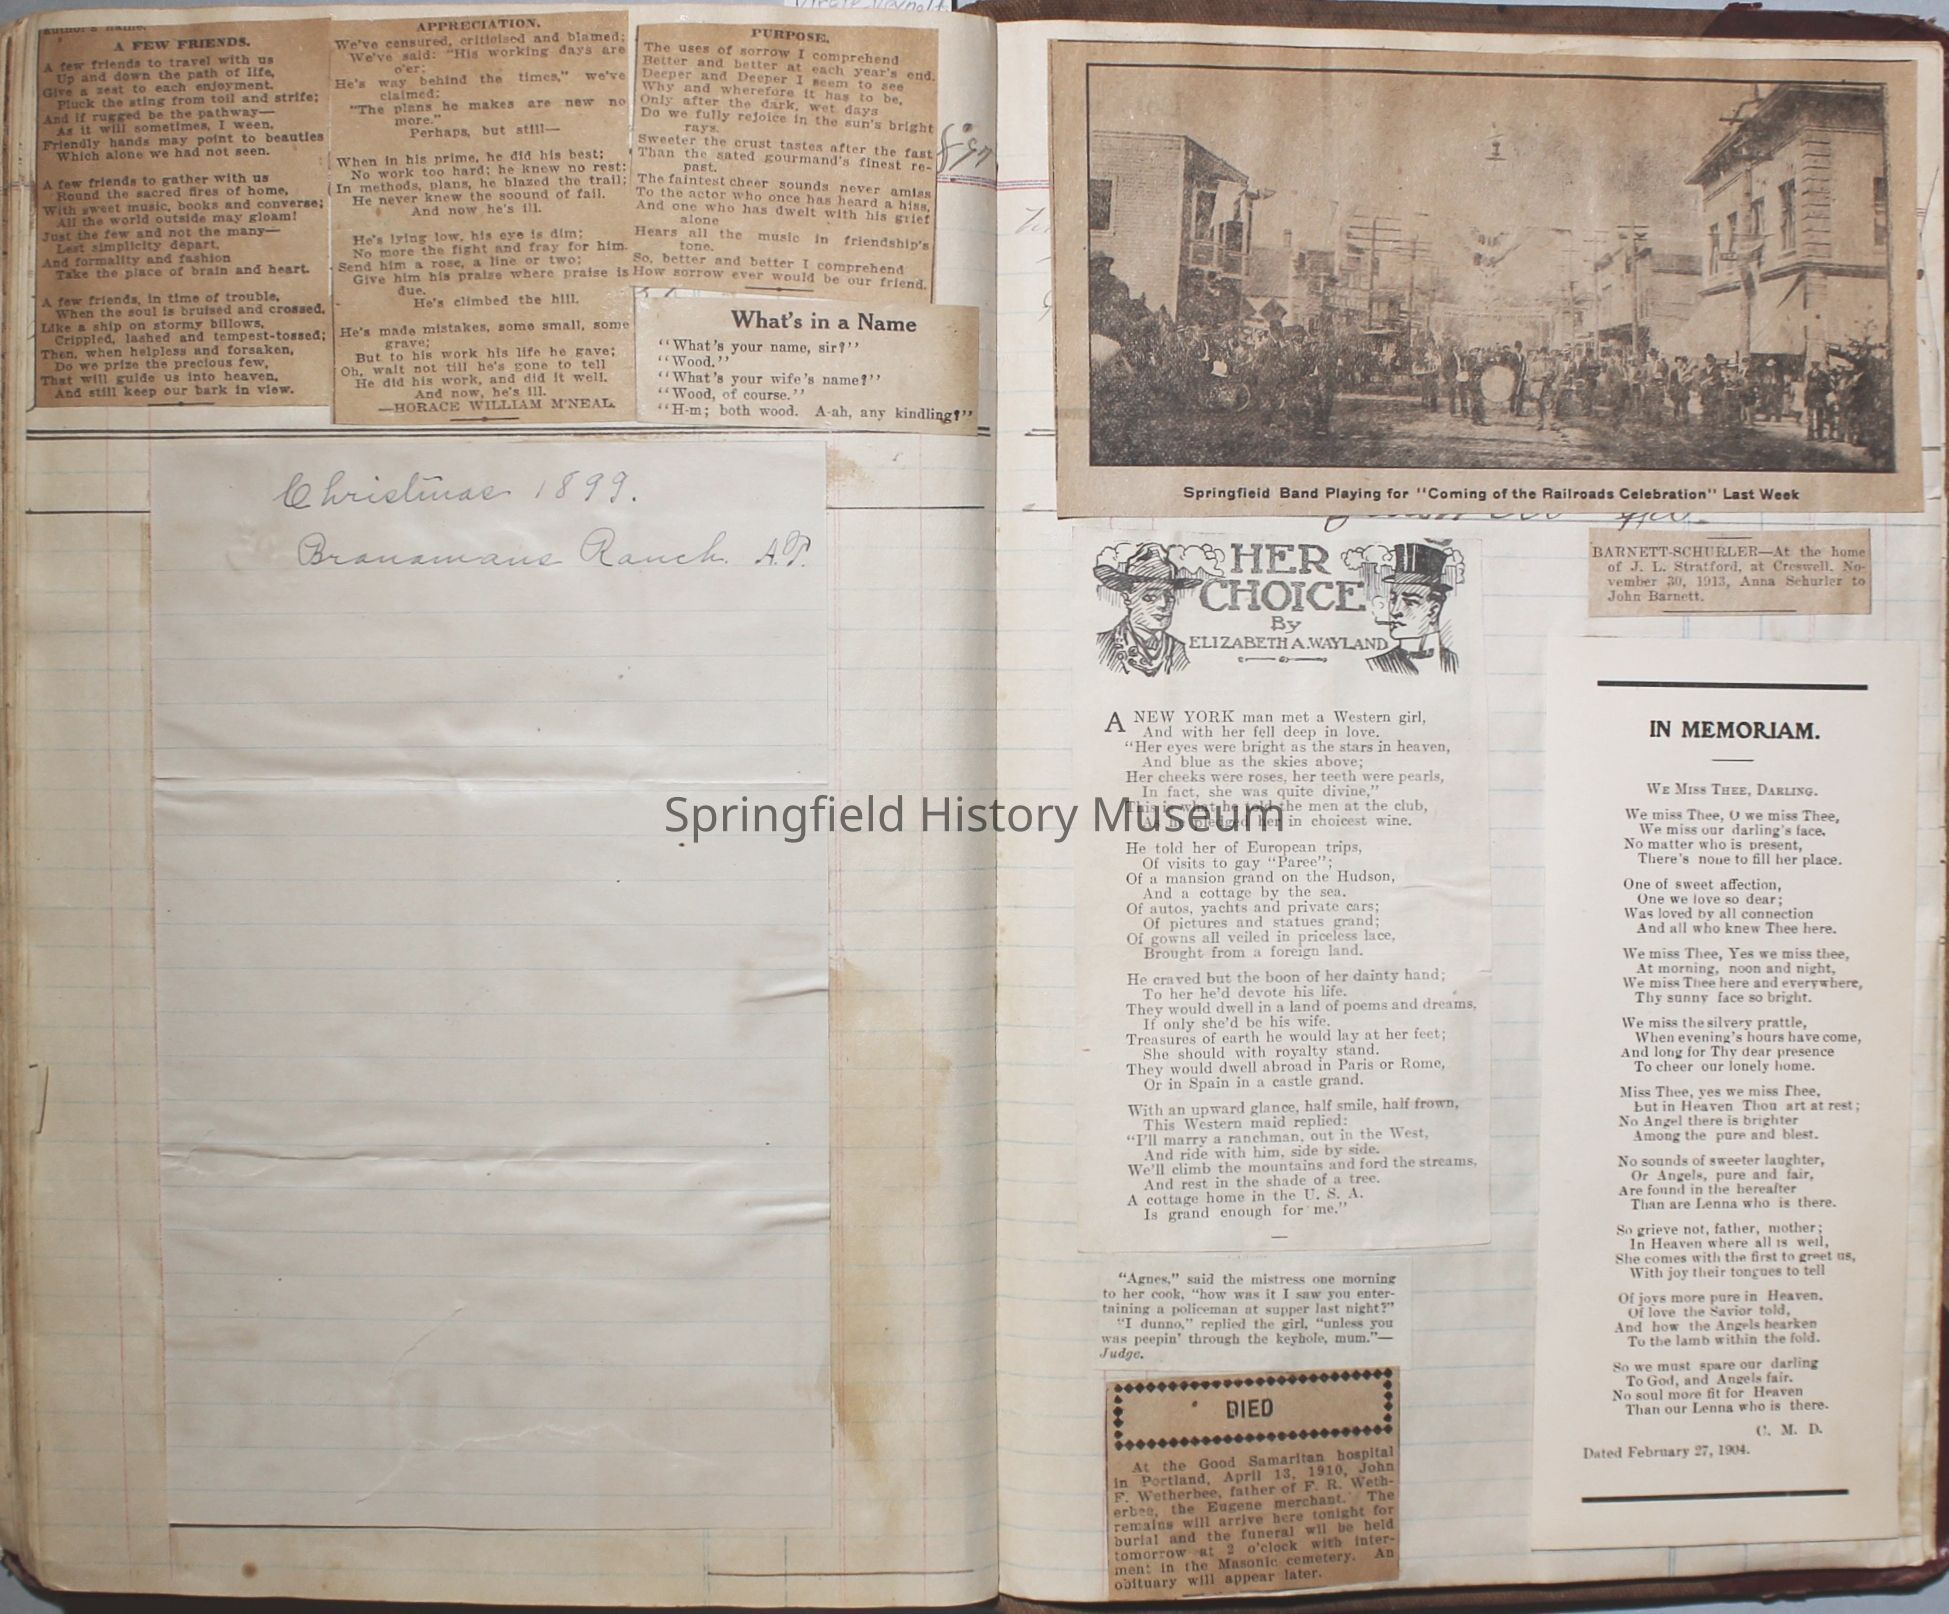 author's name.
A FEW FRIENDS.
A few friends to travel with us
Up and down the path of life,
Give a zest to each enjoyment,
Pluck the sting from toil and strife;
And if rugged be the pathway—
As it will sometimes, I ween,
Friendly hands may point to beauties
Which alone we had not seen.
A few friends to gather with us
'Round the sacred fires of home,
With sweet music, books and converse;
All the world outside may gloam!
Just the few and not the many—
Lest simplicity depart,
And formality and fashion
Take the place of brain and heart.
A few friends, in time of trouble,
When the soul is bruised and crossed,
Like a ship on stormy billows,
Crippled, lashed and tempest-tossed;
Then, when helpless and forsaken,
Do we prize the precious few,
That will guide us into heaven,
And still keep our bark in view.
APPRECIATION.
We've censured, criticised and blamed;
We've said: "His working days are
o'er;
He's way behind the times," we've
claimed;
"The plans he makes are new no
more."
Perhaps, but still—
When in his prime, he did his best;
No work too hard; he knew no rest;
In methods, plans, he blazed the trail;
He never knew the soound of fail.
And now he's ill.
He's lying low, his eye is dim;
No more the fight and fray for him.
Send him a rose, a line or two;
Give him his praise where praise is
due.
He's climbed the hill.
He's made mistakes, some small, some
grave;
But to his work his life he gave;
Oh, wait not till he's gone to tell
He did his work, and did it well.
And now, he's ill.
—HORACE WILLIAM M'NEAL.
PURPOSE.
The uses of sorrow I comprehend
Better and better at each year's end.
Deeper and Deeper I seem to see
Why and wherefore it has to be,
Only after the dark, wet days
Do we fully rejoice in the sun's bright
rays.
Sweeter the crust tastes after the fast
Than the sated gourmand's finest re-
past.
The faintest cheer sounds never amiss
To the actor who once has heard a hiss,
And one who has dwelt with his grief
alone
Hears all the music in friendship's
tone.
So, better and better I comprehend
How sorrow ever would be our friend.
What's in a Name
"What's your name, sir?"
"Wood."
"What's your wife's name?"
"Wood, of course."
"H-m; both wood. A-ah, any kindling?"
Christmas 1899.
Branamans Ranch. A.T.
Springfield History Museum
Springfield Band Playing for "Coming of the Railroads Celebration" Last Week
HER
CHOICE
By
ELIZABETH A. WAYLAND
A NEW YORK man met a Western girl,
And with her fell deep in love.
"Her eyes were bright as the stars in heaven,
And blue as the skies above;
Her cheeks were roses, her teeth were pearls,
In fact, she was quite divine,"
This is what he told the men at the club,
As he pledged her in choicest wine.
He told her of European trips,
Of visits to gay "Paree";
Of a mansion grand on the Hudson,
And a cottage by the sea.
Of autos, yachts and private cars;
Of pictures and statues grand;
Of gowns all veiled in priceless lace,
Brought from a foreign land.
He craved but the boon of her dainty hand;
To her he'd devote his life.
They would dwell in a land of poems and dreams,
If only she'd be his wife.
Treasures of earth he would lay at her feet;
She should with royalty stand.
They would dwell abroad in Paris or Rome,
Or in Spain in a castle grand.
With an upward glance, half smile, half frown,
This Western maid replied:
"I'll marry a ranchman, out in the West,
And ride with him, side by side.
We'll climb the mountains and ford the streams,
And rest in the shade of a tree.
A cottage home in the U. S. A.
Is grand enough for me."
"Agnes," said the mistress one morning
to her cook, "how was it I saw you enter-
taining a policeman at supper last night?"
"I dunno," replied the girl, "unless you
was peepin' through the keyhole, mum."—
Judge.
DIED
At the Good Samaritan hospital
in Portland, April 13, 1910, John
F. Wetherbee, father of F. R. Weth-
erbee, the Eugene merchant. The
remains will arrive here tonight for
burial and the funeral wll be held
tomorrow at 2 o'clock with inter-
ment in the Masonic cemetery. An
obituary will appear later.
BARNETT-SCHURLER—At the home
of J. L. Stratford, at Creswell, No-
vember 30, 1913, Anna Schurler to
John Barnett.
IN MEMORIAM.
WE MISS THEE, DARLING.
We miss Thee, O we miss Thee,
We miss our darling's face,
No matter who is present,
There's none to fill her place.
One of sweet affection,
One we love so dear;
Was loved by all connection
And all who knew Thee here.
We miss Thee, Yes we miss thee,
At morning, noon and night,
We miss Thee here and everywhere,
Thy sunny face so bright.
We miss the silvery prattle,
When evening's hours have come,
And long for Thy dear presence
To cheer our lonely home.
Miss Thee, yes we miss Thee,
but in Heaven Thou art at rest;
No Angel there is brighter
Among the pure and blest.
No sounds of sweeter laughter,
Or Angels, pure and fair,
Are found in the hereafter
Than are Lenna who is there.
So grieve not, father, mother;
In Heaven where all is well,
She comes with the first to greet us,
With joy their tongues to tell
Of joys more pure in Heaven,
Of love the Savior told,
And how the Angels hearken
To the lamb within the fold.
So we must spare our darling
To God, and Angels fair.
No soul more fit for Heaven
Than our Lenna who is there.
C. M. D.
Dated February 27, 1904.